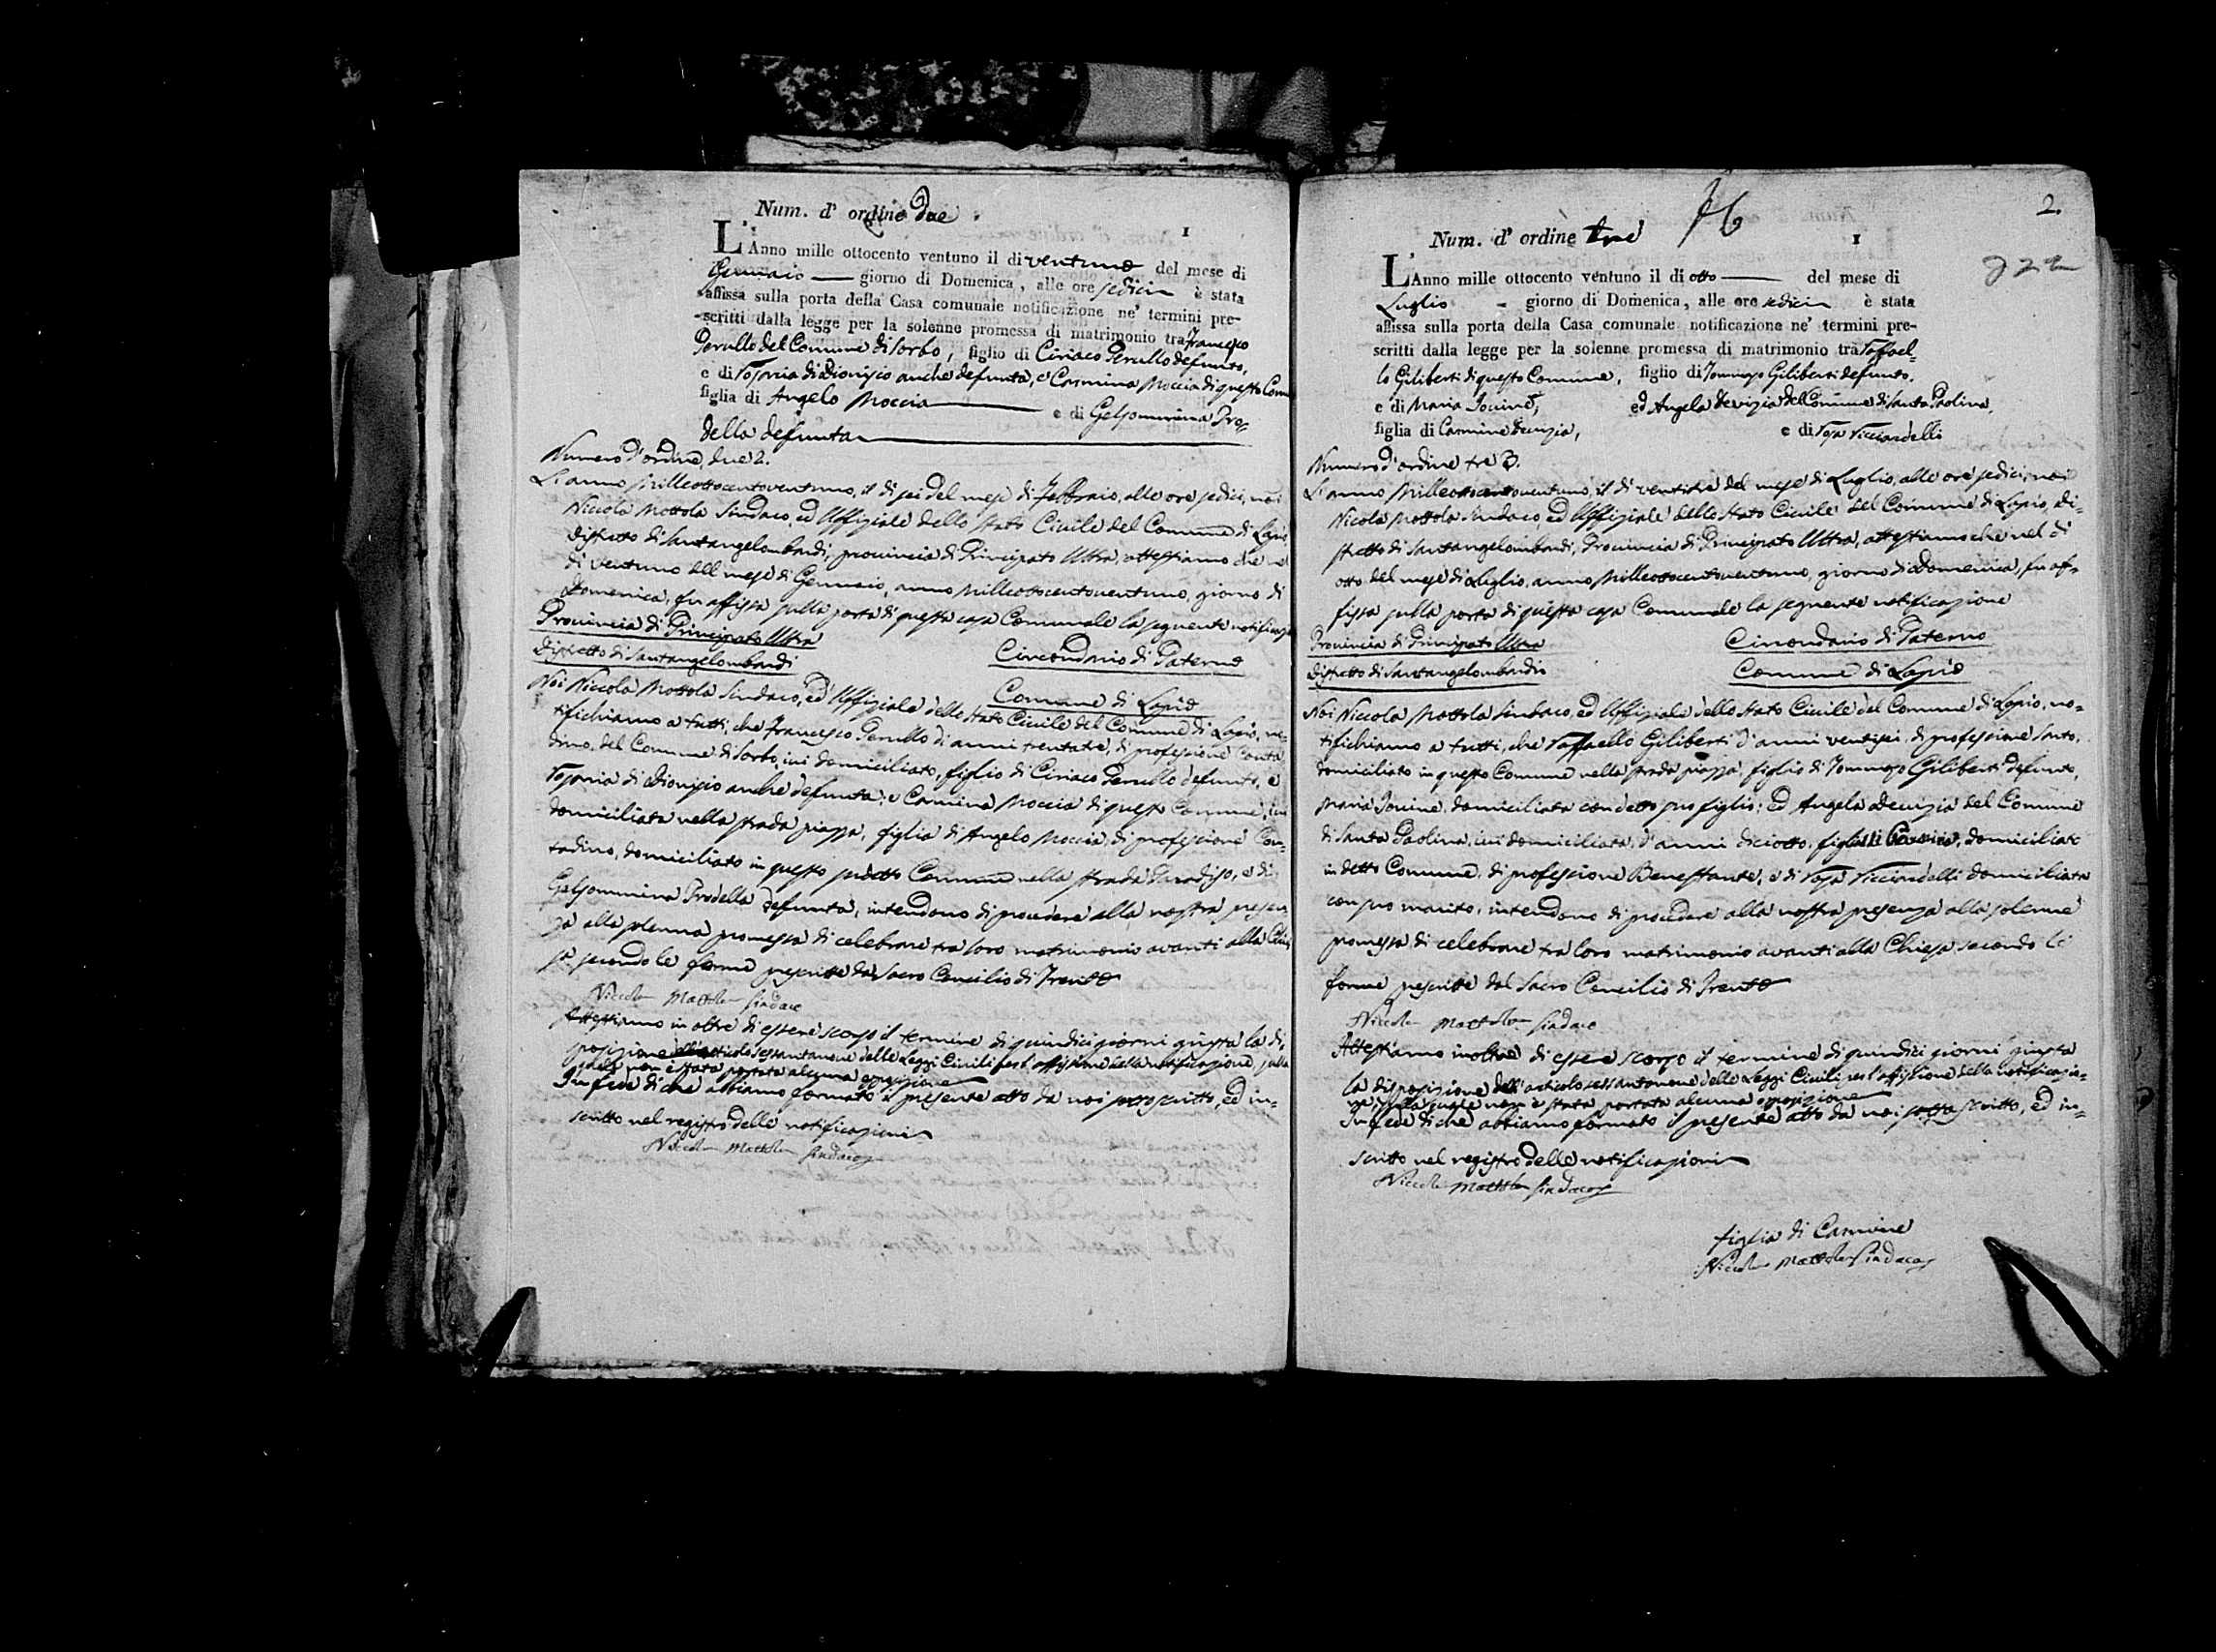 Num. d' ordine due
1
L'Anno mille ottocento ventuno il di ventuno del mese di
Gennaio giorno di Domenica, alle ore sedici è stata
affissa sulla porta della Casa comunale notificazione ne' termini pre-
scritti dalla legge per la solenne promessa di matrimonio tra Francesco
Perullo del Comune di Sorbo, figlio di Ciriaco Perullo defunto,
e di Rosaria di Dionisio anche defunta, e Carmina Moccia di questo Comu
figlia di Angelo Moccia e di Gelsommina Pro-
della defunta
Numero d'ordine due 2.
L'anno Milleottocentoventuno, il di sei del mese di Febbraio, alle ore sedici, noi
Niccola Mottola Sindaco, ed Uffiziale dello Stato Civile del Comune di Lapio,
Distretto di Santangelombardi, provincia di Principato Ultra, attestiamo che nel
di ventuno del mese di Gennaio, anno milleottocentoventuno, giorno di
Domenica, fu affissa sulla porta di questa casa Comunale la seguente notificazio
Provincia di Principato Ultra
Distretto di Santangelombardi
Circondario di Paterno
Comune di Lapio
Noi Niccola Mottola Sindaco, ed Uffiziale dello Stato Civile del Comune di Lapio, no-
tifichiamo a tutti, che Francesco Perullo di anni trentatre, di professione Conta-
dino, del Comune di Sorbo, ivi domiciliato, figlio di Ciriaco Perullo defunto, e
Rosaria di Dionisio anche defunta; e Carmina Moccia di questo Comune, ivi
domiciliata nella strada piazza, figlia di Angelo Moccia, di professione Con-
tadino, domiciliato in questo sudetto Comune nella strada Paradiso, e di
Gelsommina Prodella defunta, intendono di procedere alla nostra presen-
za alla solenna promessa di celebrare tra loro matrimonio avanti alla Chie
sa secondo le forme prescritte dal Sacro Concilio di Trento
Niccola Mottola Sindaco
Attestiamo inoltre di essere scorso il termine di quindici giorni giusta la di-
sposizione dell'articolo sessantanove delle Leggi Civili per l'affissione della notificazione, sulla
quale non è stata portata alcuna opposizione
In fede di che abbiamo formato il presente atto da noi sottoscritto, ed in-
scritto nel registro delle notificazioni
Niccola Mottola Sindaco
2.
Num. d' ordine tre
1
L'Anno mille ottocento ventuno il di otto del mese di
Luglio giorno di Domenica, alle ore sedici è stata
affissa sulla porta della Casa comunale notificazione ne' termini pre-
scritti dalla legge per la solenne promessa di matrimonio tra Raffael-
lo Giliberti di questo Comune, figlio di Tommaso Giliberti defunto,
e di Maria Iovine, ed Angela Devizia del Comune di Santa Paolina,
figlia di Carmine Devizia, e di Rosa Ricciardelli
Numero d'ordine tre 3.
L'anno Milleottocentoventuno, il di ventitre del mese di Luglio, alle ore sedici, noi
Nicola Mottola Sindaco, ed Uffiziale dello Stato Civile del Comune di Lapio, Di-
stretto di Santangelombardi, Provincia di Principato Ultra, attestiamo che nel di
otto del mese di Luglio, anno Milleottocentoventuno, giorno di Domenica, fu af-
fissa sulla porta di questa casa Comunale la seguente notificazione
Provincia di Principato Ultra
Circondario di Paterno
Distretto di Santangelombardi
Comune di Lapio
Noi Niccola Mottola Sindaco, ed Uffiziale dello Stato Civile del Comune di Lapio, no-
tifichiamo a tutti, che Raffaello Giliberti d'anni ventisei, di professione Sarto,
domiciliato in questo Comune nella strada piazza, figlio di Tommaso Giliberti defunto,
Maria Iovine, domiciliata con detto suo figlio; ed Angela Devizia del Comune
di Santa Paolina, ivi domiciliata, d'anni diciotto, figlia di Carmine, domiciliato
in detto Comune, di professione Benestante, e di Rosa Ricciardelli domiciliata
con suo marito, intendono di procedere alla nostra presenza alla solenne
promessa di celebrare tra loro matrimonio avanti alla Chiesa secondo le
forme prescritte dal Sacro Concilio di Trento
Niccola Mottola Sindaco
Attestiamo inoltre di essere scorso il termine di quindici giorni giusta
la disposizione dell'articolo sessantanove delle Leggi Civili per l'affissione della notificazio-
ne, sulla quale non è stata portata alcuna opposizione
In fede di che abbiamo formato il presente atto da noi sottoscritto, ed in-
scritto nel registro delle notificazioni
Niccola Mottola Sindaco
figlia di Carmine
Niccola Mottola Sindaco